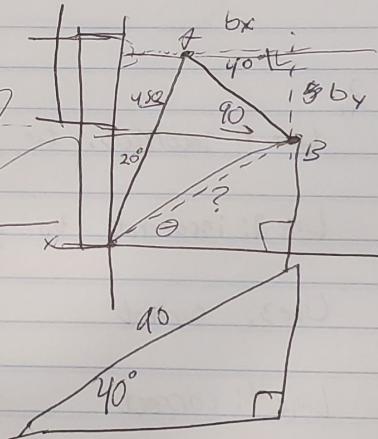 bx
A
40
by
452
90
20°
B
?
x
θ
90
40°